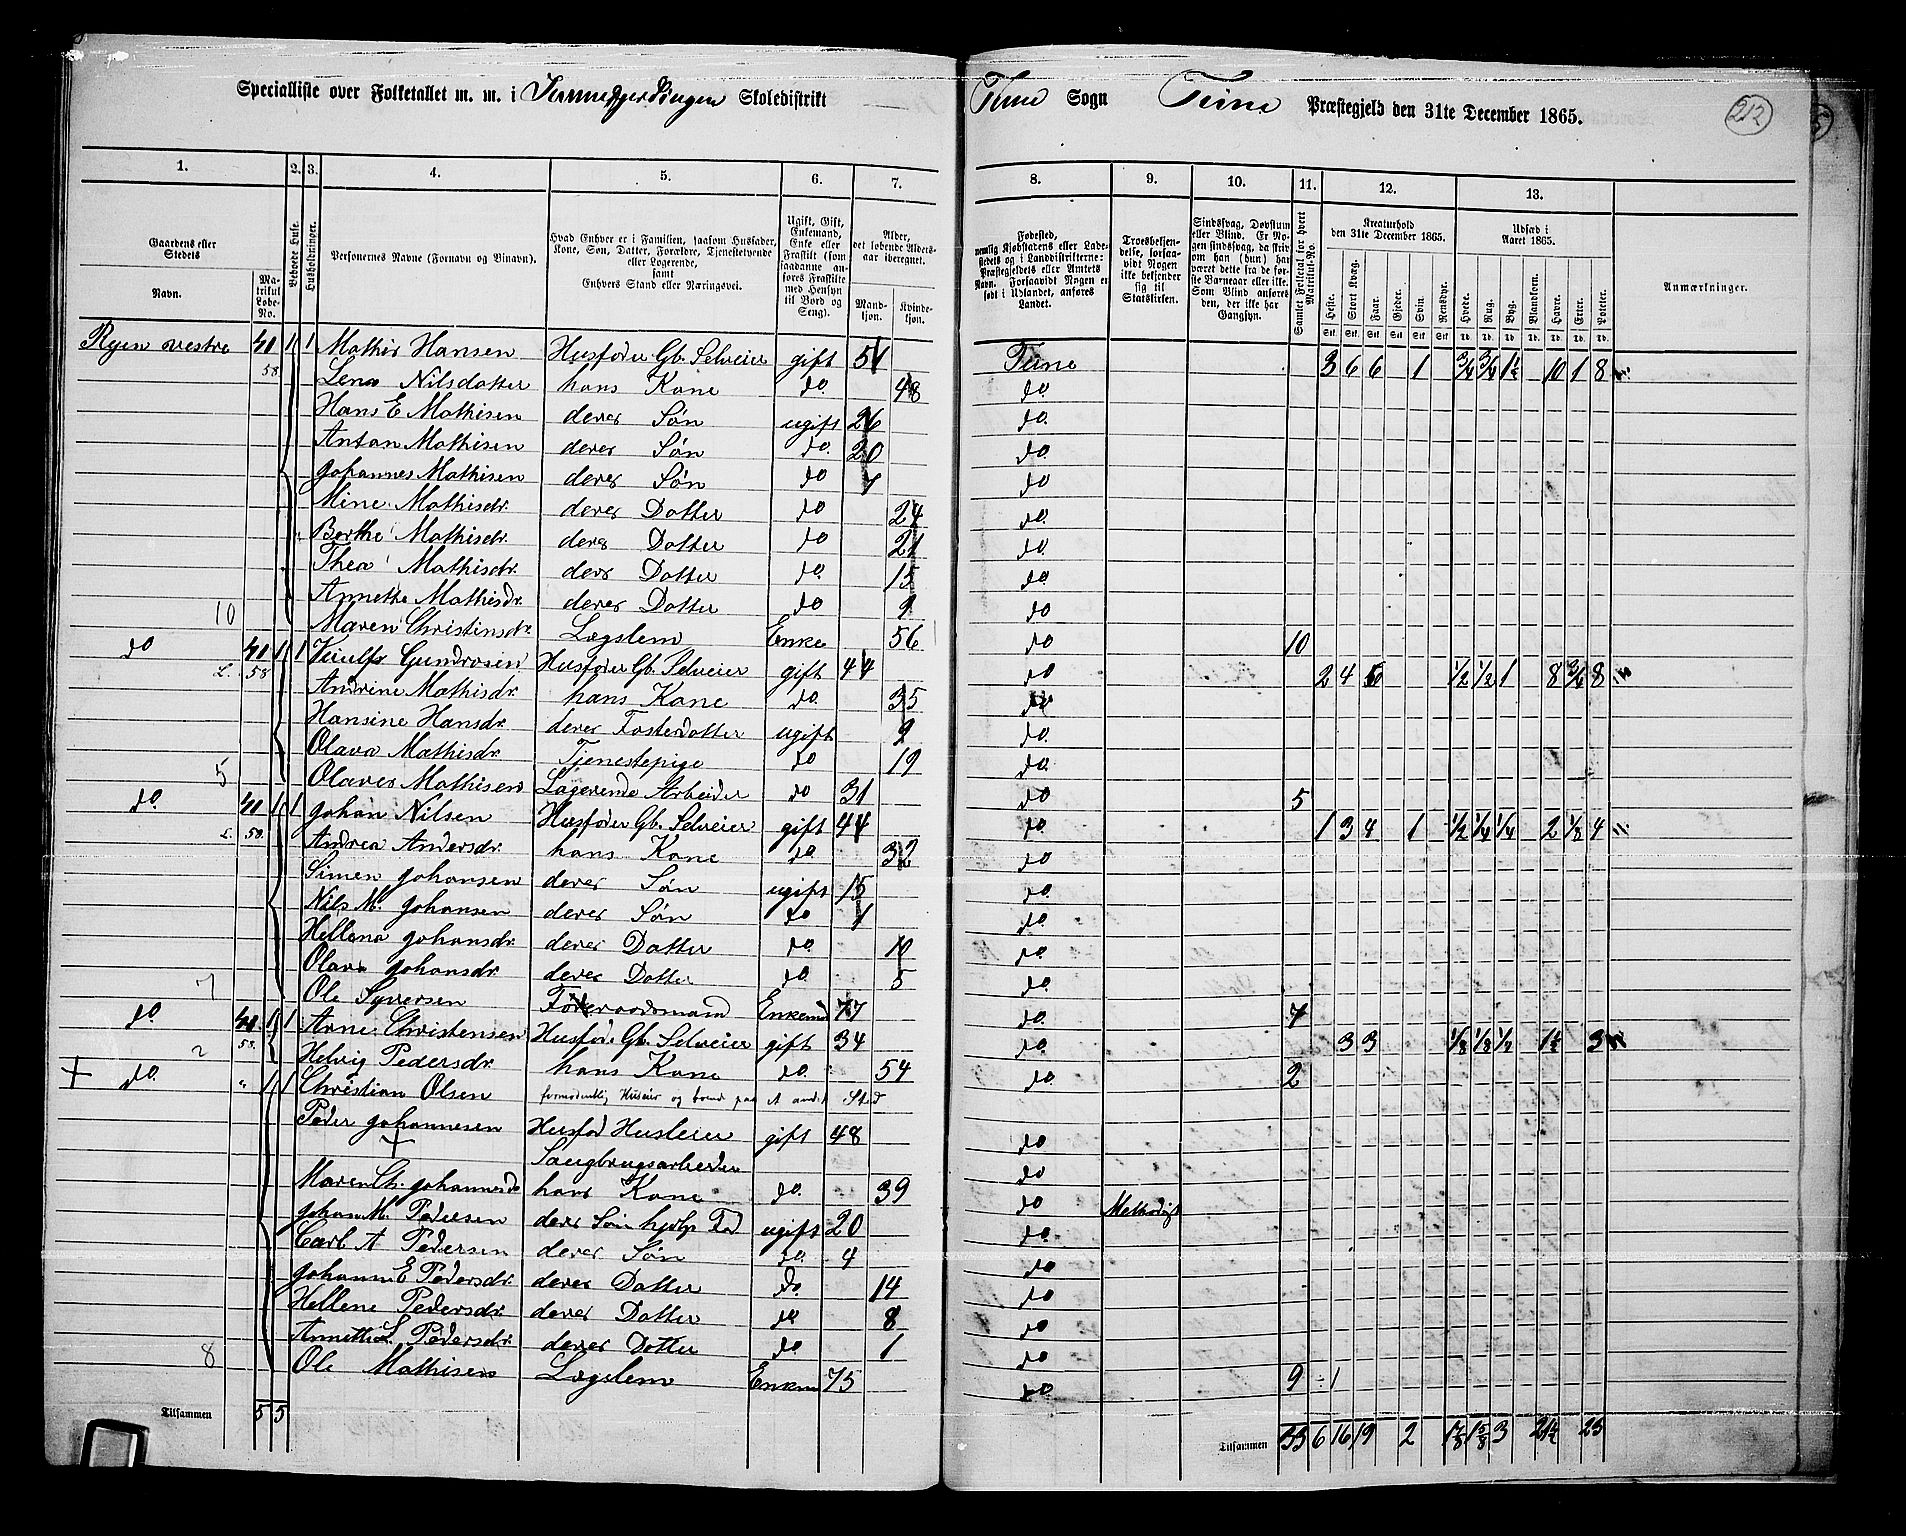 Specialliste over Folketallet m. m. i Skoledistrikt Tune Sogn Tune Præstegjeld den 31te December 1865.
212
1. 2. 3. 4. 5. 6. 7. 8. 9. 10. 11. 12. 13.
Gaardens eller Stedets
Navn.
Matrikul Løbe-No.
Beboede Huse.
Husholdninger.
Personernes Navne (Fornavn og Binavn).
Hvad Enhver er i Familien, saasom Husfader, Kone, Søn, Datter, Forældre, Tjenestetyende eller Logerende, samt Enhvers Stand eller Næringsvei.
Ugift, Gift, Enkemand, Enke eller Fraskilt (som saadanne anføres Fraskilte med Hensyn til Bord og Seng).
Alder, det løbende Aldersaar iberegnet.
Mandkjøn. Kvindekjøn.
Fødested, nemlig Kjøbstadens eller Ladestedets og i Landdistrikterne: Præstegjeldets eller Amtets Navn. Forsaavidt Nogen er født i Udlandet, anføres Landet.
Troesbekjendelse, forsaavidt Nogen ikke bekjender sig til Statskirken.
Sindssvag, Døvstum eller Blind. Er Nogen sindssvag, da skrives om han (hun) har været dette fra de første Barneaar eller ikke. Som Blind anføres den, der ikke har Gangsyn.
Samlet Folketal for hvert Matrikul-No.
Kreaturhold den 31te December 1865.
Heste. Stort Kvæg. Faar. Gjeder. Svin. Rensdyr.
Udsæd i Aaret 1865.
Hvede. Rug. Byg. Blandkorn. Havre. Erter. Poteter.
Anmærkninger.
Ryen vestre 41 1 1 Mathis Hansen Husfader Gb. Selveier gift 51 Tune 3 6 6 1 3/4 3/4 1 1/2 10 1 8
58 Lena Nilsdatter hans Kone do. 48 do
Hans E Mathisen deres Søn ugift 26 do.
Anton Mathisen deres Søn do. 20 do.
Johannes Mathisen deres Søn do 7 do
Mine Mathisdr. deres Datter do 24 do.
Berthe Mathisdr. deres Datter do 21 do.
Thea Mathisdr. deres Datter do. 15 do.
Annethe Mathisdr. deres Datter do 9 do
10 Maren Christinsdr. Lægslem Enke 56 do 10
do 41 1 1 Gundrosen Husfader Gb. Selveier gift 44 do 2 4 1/2 1/2 1 8 8
L. 58 Andrine Mathisdr. hans Kone do. 35 do
Hansine Hansdr. deres Fosterdatter ugift 9 do.
Olava Mathisdr. Tjenestepige do 19 do.
5 Olaves Mathisen Logerende Arbeider do 31 do 5
do. 41 1 1 Johan Nilsen Husfader Gb. Selveier gift 44 do 1 3 4 1 1/2 1/4 1/4 2 1/8 4
L. 58. Andrea Andersdr. hans Kone do. 32 do
Simen Johansen deres Søn ugift 15 do
Nils M. Johansen deres Søn do 1 do.
Hellena Johansdr. deres Datter do. 10 do.
Olava Johansdr. deres Datter do. 5 do
7 Ole Syversen Føderaadsmand Enkemd 77 do. 7
do 41 1 1 Arne Christensen Husfad. Gb. Selveier gift 34 do. 3 3 1/8 1/8 1/4 3
2 58. Helvig Pedersdr. hans Kone do. 54 do. 2
+ do. " 1 1 Christian Olsen formodentlig Huseier og boende paa et andet Sted
Peder Johannesen Husfad Husleier gift 48 do
+ Saugbrugsarbeider do
Maren Ch. Johannesdr hans Kone do. 39 do Methodist
Johan M. Pedersen deres Søn hjelp Fad ugift 20 do.
Carl A Pedersen deres Søn do. 4 do
Johanne E Pedersdr. deres Datter do 14 do.
Hellene Pedersdr. deres Datter do 8 do
Annette L. Pedersdr. deres Datter do. 1 do
8 Ole Mathisen Lægslem Enkem 75 do. 9 ÷1
Tilsammen 5 5
Tilsammen 33 6 16 19 2 1 7/8 1 5/8 3 21 1/2 23